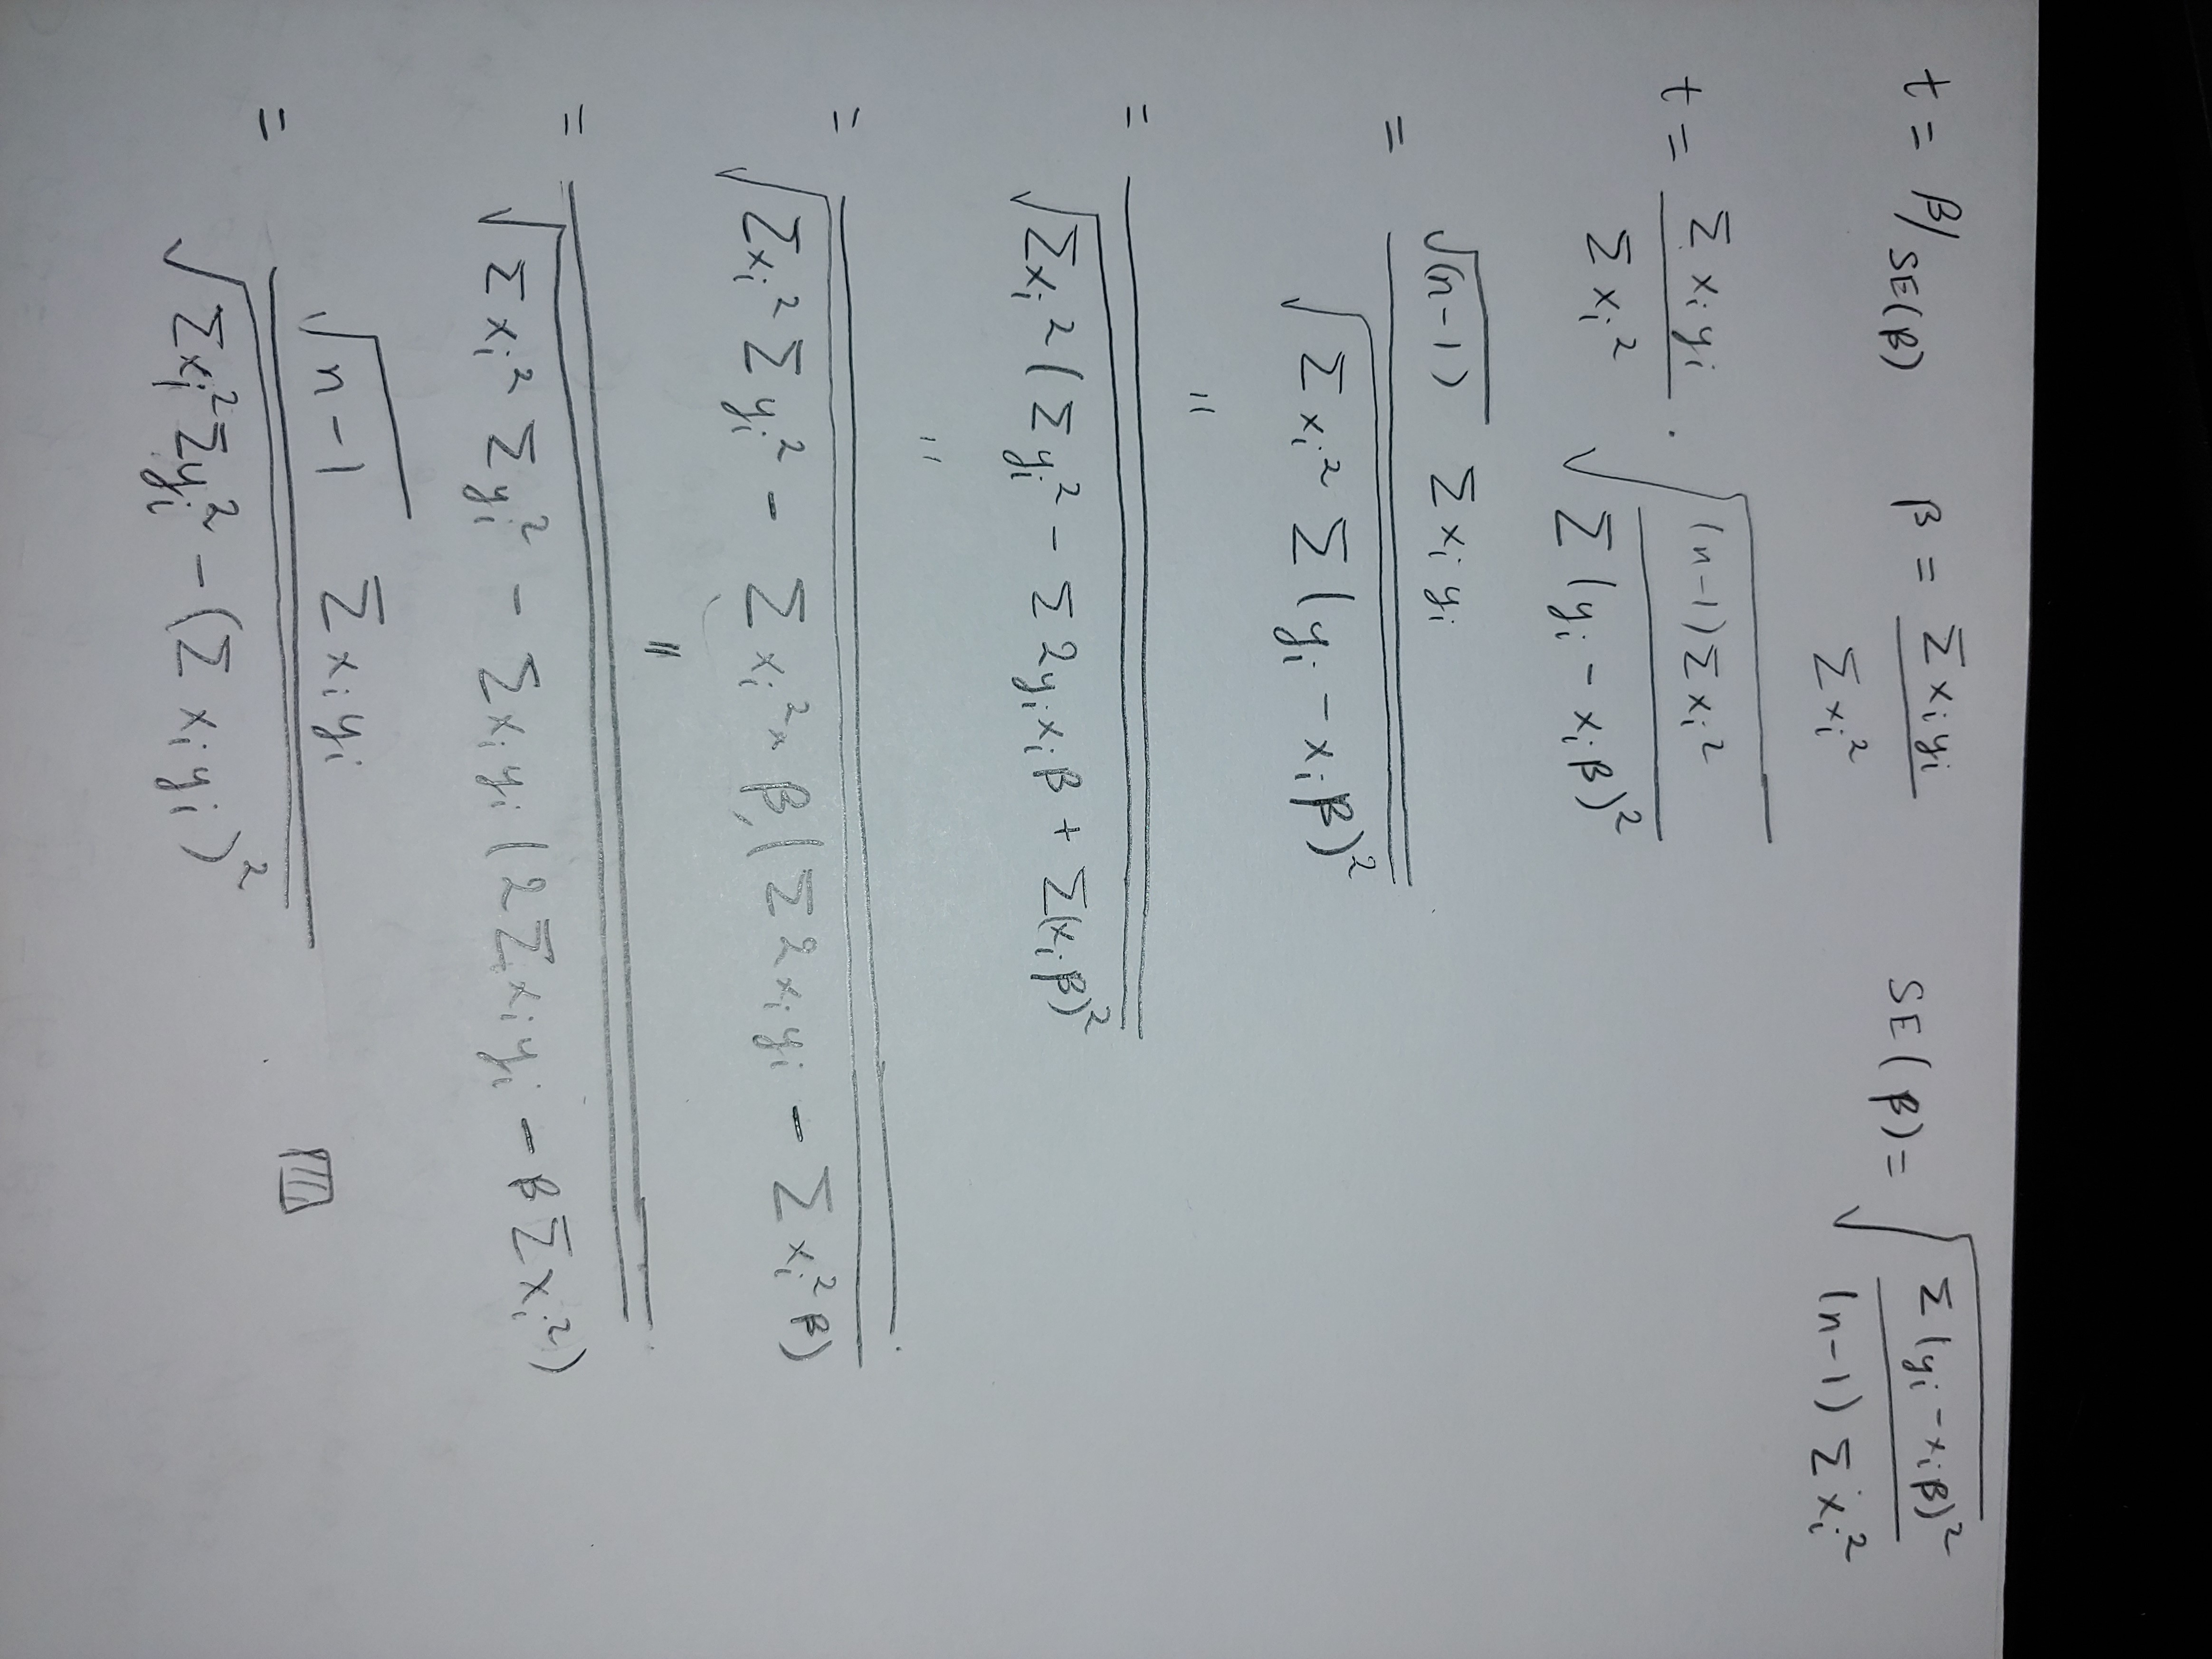 t = β/SE(β)    β = Σxᵢyᵢ / Σxᵢ²    SE(β) = √(Σ(yᵢ − xᵢβ)² / (n−1)Σxᵢ²)
t = Σxᵢyᵢ / Σxᵢ² · √((n−1)Σxᵢ² / Σ(yᵢ − xᵢβ)²)
= √(n−1) Σxᵢyᵢ / √(Σxᵢ² Σ(yᵢ − xᵢβ)²)
= " / √(Σxᵢ²(Σyᵢ² − Σ2yᵢxᵢβ + Σ(xᵢβ)²
= " / √(Σxᵢ²Σyᵢ² − Σxᵢ² × β(Σ2xᵢyᵢ − Σxᵢ²β)
= " / √(Σxᵢ²Σyᵢ² − Σxᵢyᵢ(2Σxᵢyᵢ − βΣxᵢ²)
= √(n−1) Σxᵢyᵢ / √(Σxᵢ²Σyᵢ² − (Σxᵢyᵢ)²)